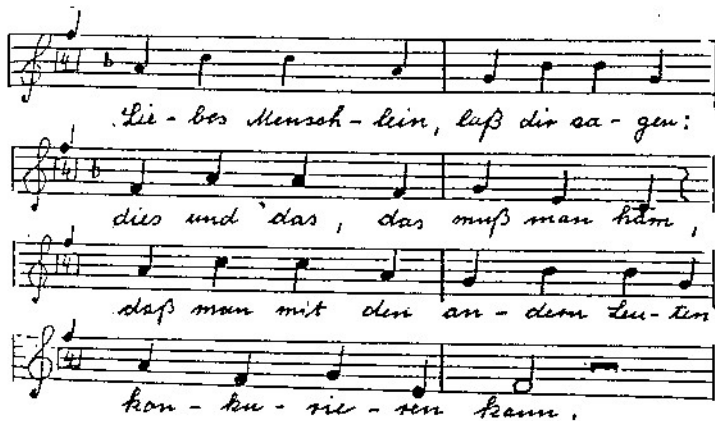 4
Lie - bes Mensch - lein, laß dir sa - gen:
4
dies und das, das muß man ham,
4
daß man mit den an - dern Leu - ten
4
kon - ku - rie - ren kann.